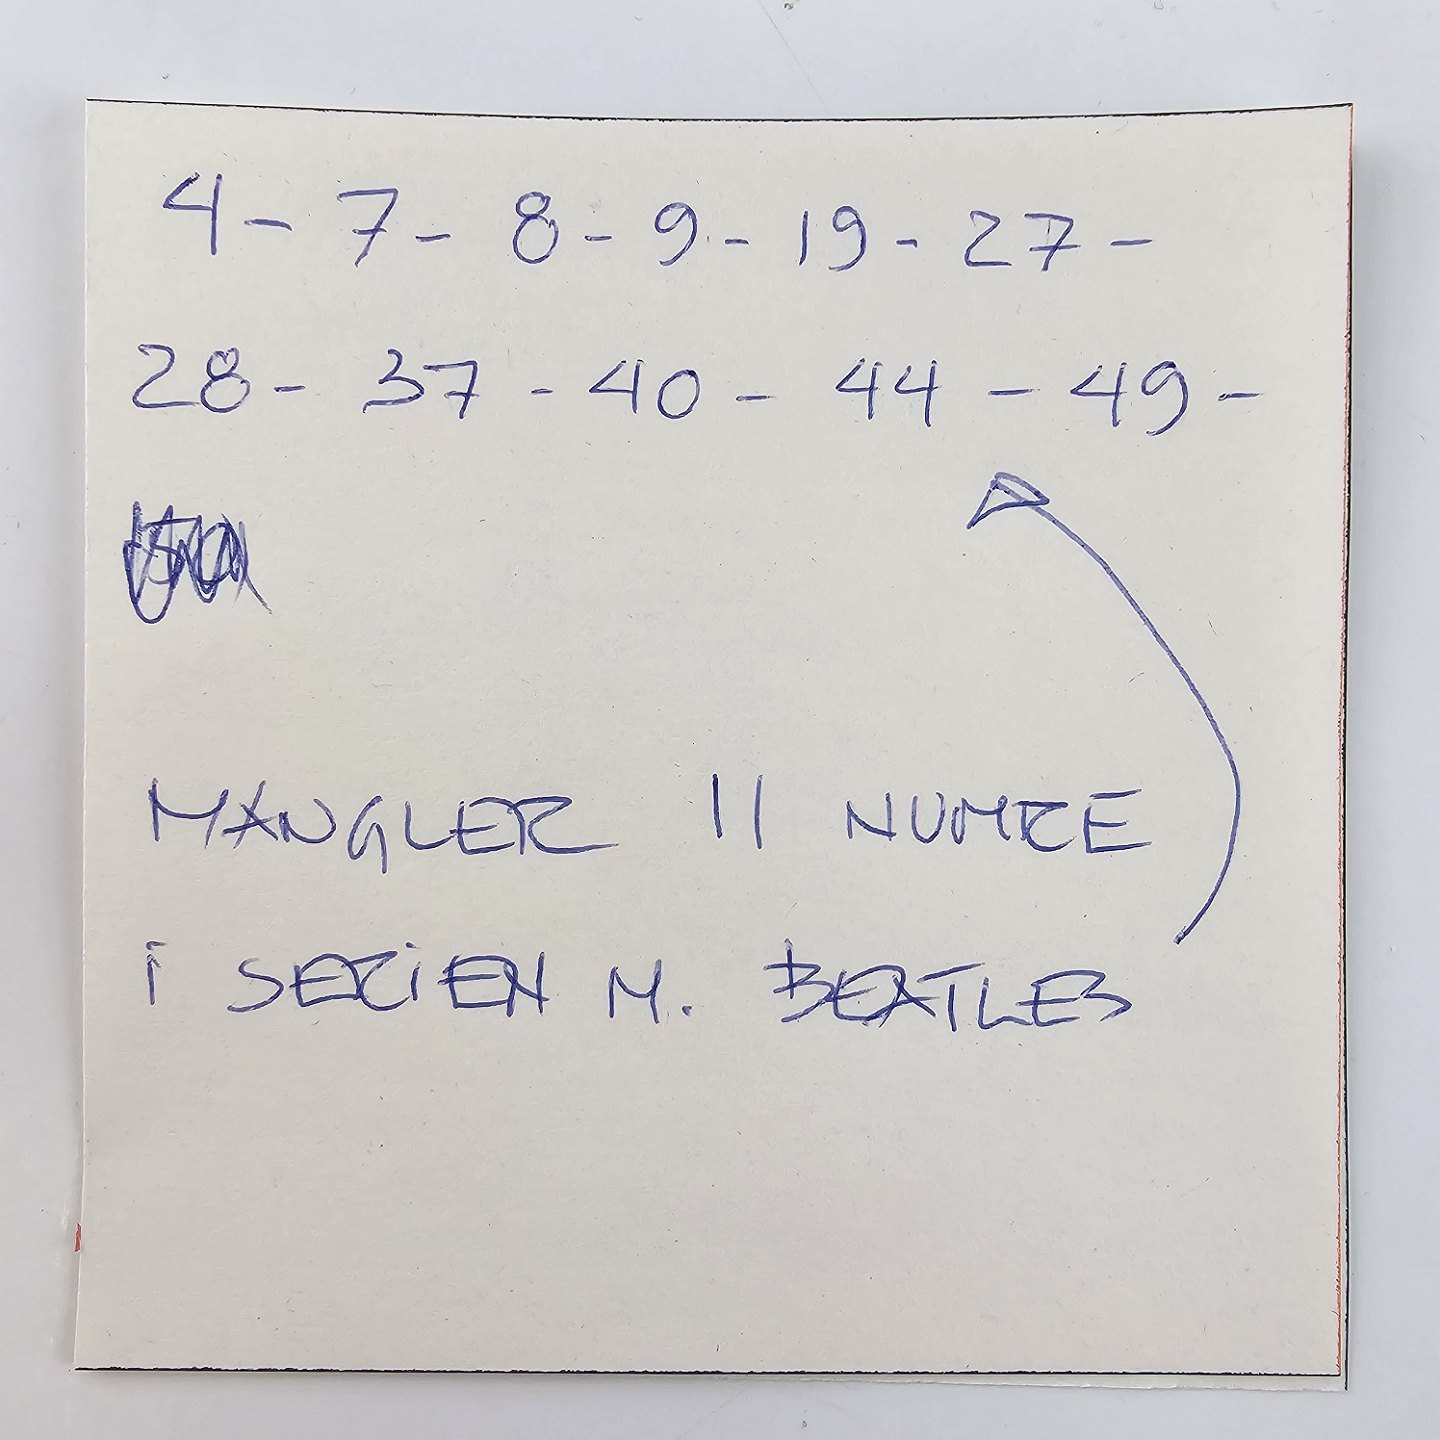 4 - 7 - 8 - 9 - 19 - 27 -
28 - 37 - 40 - 44 - 49 -
MANGLER 11 NUMRE
i SERiEN M. BEATLES